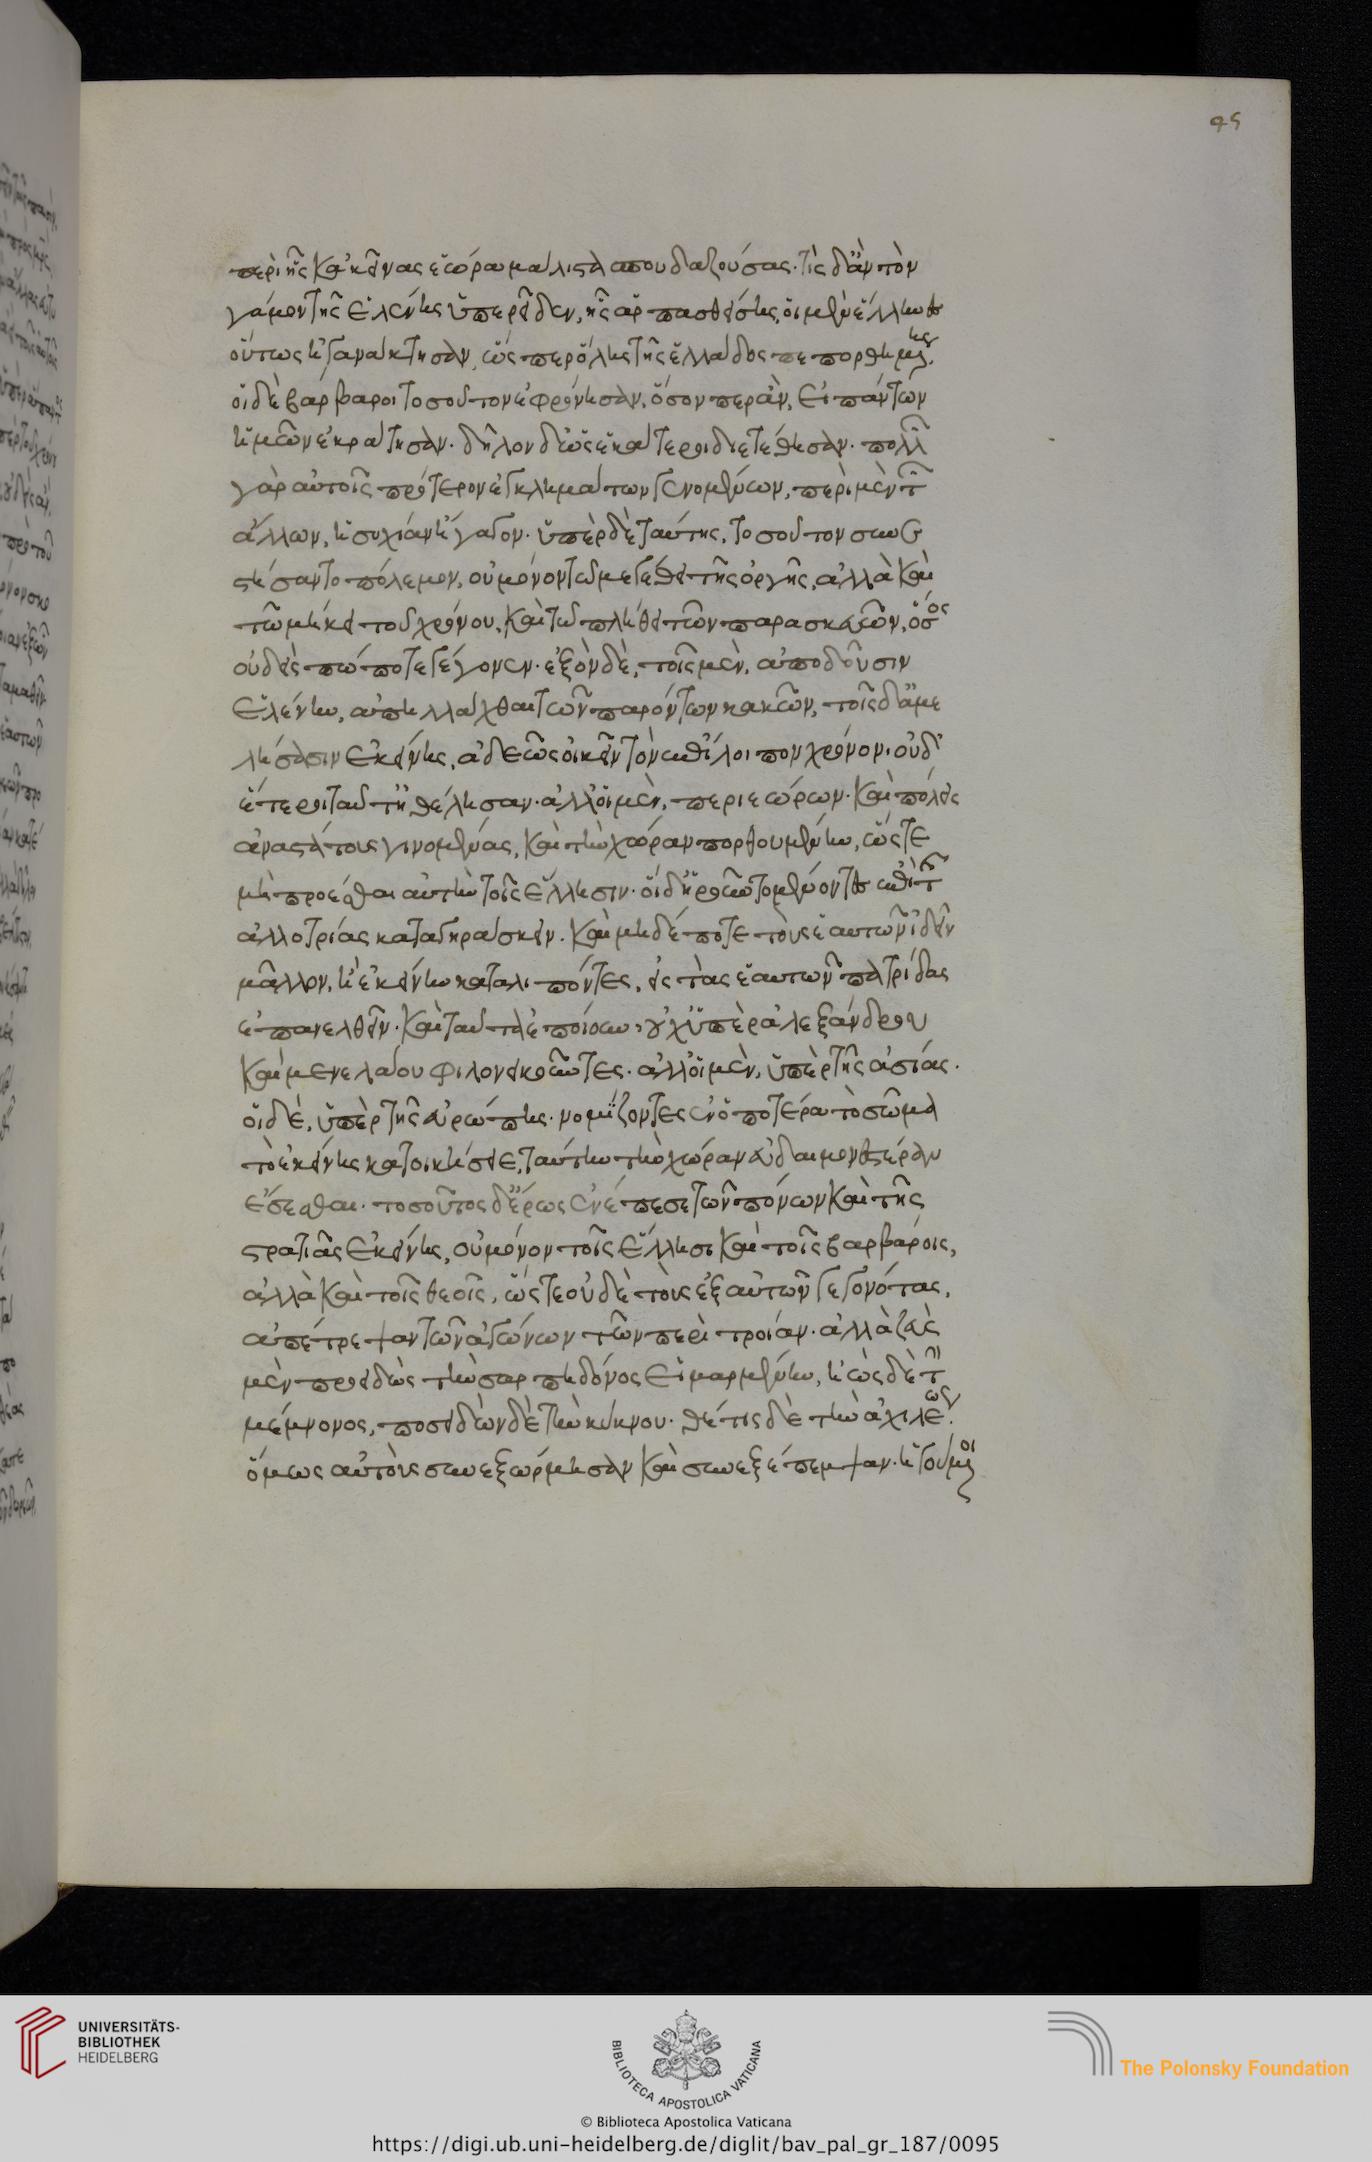 45
περὶ ἧς κἀκείνας ἑώρα μάλιστα σπουδαζούσας. τίς δ' ἂν τὸν
γάμον τῆς Ἑλένης ὑπερεῖδεν, ἧς ἁρπασθείσης, οἱ μὲν Ἕλληνες
οὕτως ἠγανάκτησαν, ὥσπερ ὅλης τῆς Ἑλλάδος πεπορθημένης.
οἱ δὲ βάρβαροι τοσοῦτον ἐφρόνησαν, ὅσον περ ἂν, εἰ πάντων
ἡμῶν ἐκράτησαν. δῆλον δ' ὡς ἑκάτεροι διετέθησαν. πολλῶν
γὰρ αὐτοῖς πρότερον ἐγκλημάτων γενομένων, περὶ μὲν τῶν
ἄλλων, ἡσυχίαν ἦγον. ὑπὲρ δὲ ταύτης, τοσοῦτον συνε
στήσαντο πόλεμον, οὐ μόνον τῷ μεγέθει τῆς ὀργῆς, ἀλλὰ καὶ
τῷ μήκει τοῦ χρόνου, καὶ τῷ πλήθει τῶν παρασκευῶν, ὅσος
οὐδεὶς πώποτε γέγονεν. ἐξὸν δὲ, τοῖς μὲν, ἀποδοῦσιν
Ἑλένην, ἀπηλλάχθαι τῶν παρόντων κακῶν, τοῖς δ' ἀμε
λήσασιν ἐκείνης, ἀδεῶς οἰκεῖν τὸν ἐπίλοιπον χρόνον. οὐδ'
ἕτεροι ταῦτ' ἠθέλησαν. ἀλλ' οἱ μὲν, περιεώρων. καὶ πόλεις
ἀναστάτους γινομένας, καὶ τὴν χώραν πορθουμένην, ὥστε
μὴ προέσθαι αὐτὴν τοῖς Ἕλλησιν. οἱ δ' ᾑροῦντο μένοντες ἐπὶ τῆς
ἀλλοτρίας καταγηράσκειν. καὶ μηδέποτε τοὺς ἑαυτῶν ἰδεῖν
μᾶλλον, ἢ ἐκείνην καταλιπόντες, εἰς τὰς ἑαυτῶν πατρίδας
ἐπανελθεῖν. καὶ ταῦτα ἐποίουν, οὐχ ὑπὲρ Ἀλεξάνδρου
καὶ Μενελάου φιλονεικοῦντες. ἀλλ' οἱ μὲν, ὑπὲρ τῆς Ἀσίας.
οἱ δέ, ὑπὲρ τῆς Εὐρώπης. νομίζοντες ἐν ὁποτέρᾳ τὸ σῶμα
τὸ ἐκείνης κατοικήσειε, ταύτην τὴν χώραν εὐδαιμονεστέραν
ἔσεσθαι. τοσοῦτος δ' ἔρως ἐνέπεσε τῶν πόνων καὶ τῆς
στρατιᾶς ἐκείνης, οὐ μόνον τοῖς Ἕλλησι καὶ τοῖς βαρβάροις,
ἀλλὰ καὶ τοῖς θεοῖς, ὥστε οὐδὲ τοὺς ἐξ αὐτῶν γεγονότας,
ἀπέτρεψαν τῶν ἀγώνων τῶν περὶ Τροίαν. ἀλλὰ Ζεὺς
μὲν προειδὼς τὴν Σαρπηδόνος εἱμαρμένην, ἠὼς δὲ τὴν
Μέμνονος, Ποσειδῶν δὲ τὴν Κύκνου. Θέτις δὲ τὴν Ἀχιλέως.
ὅμως αὐτοὺς συνεξώρμησαν καὶ συνεξέπεμψαν. ἡγούμενοι
UNIVERSITÄTS-
BIBLIOTHEK
HEIDELBERG
BIBLIOTECA APOSTOLICA VATICANA
The Polonsky Foundation
© Biblioteca Apostolica Vaticana
https://digi.ub.uni-heidelberg.de/diglit/bav_pal_gr_187/0095